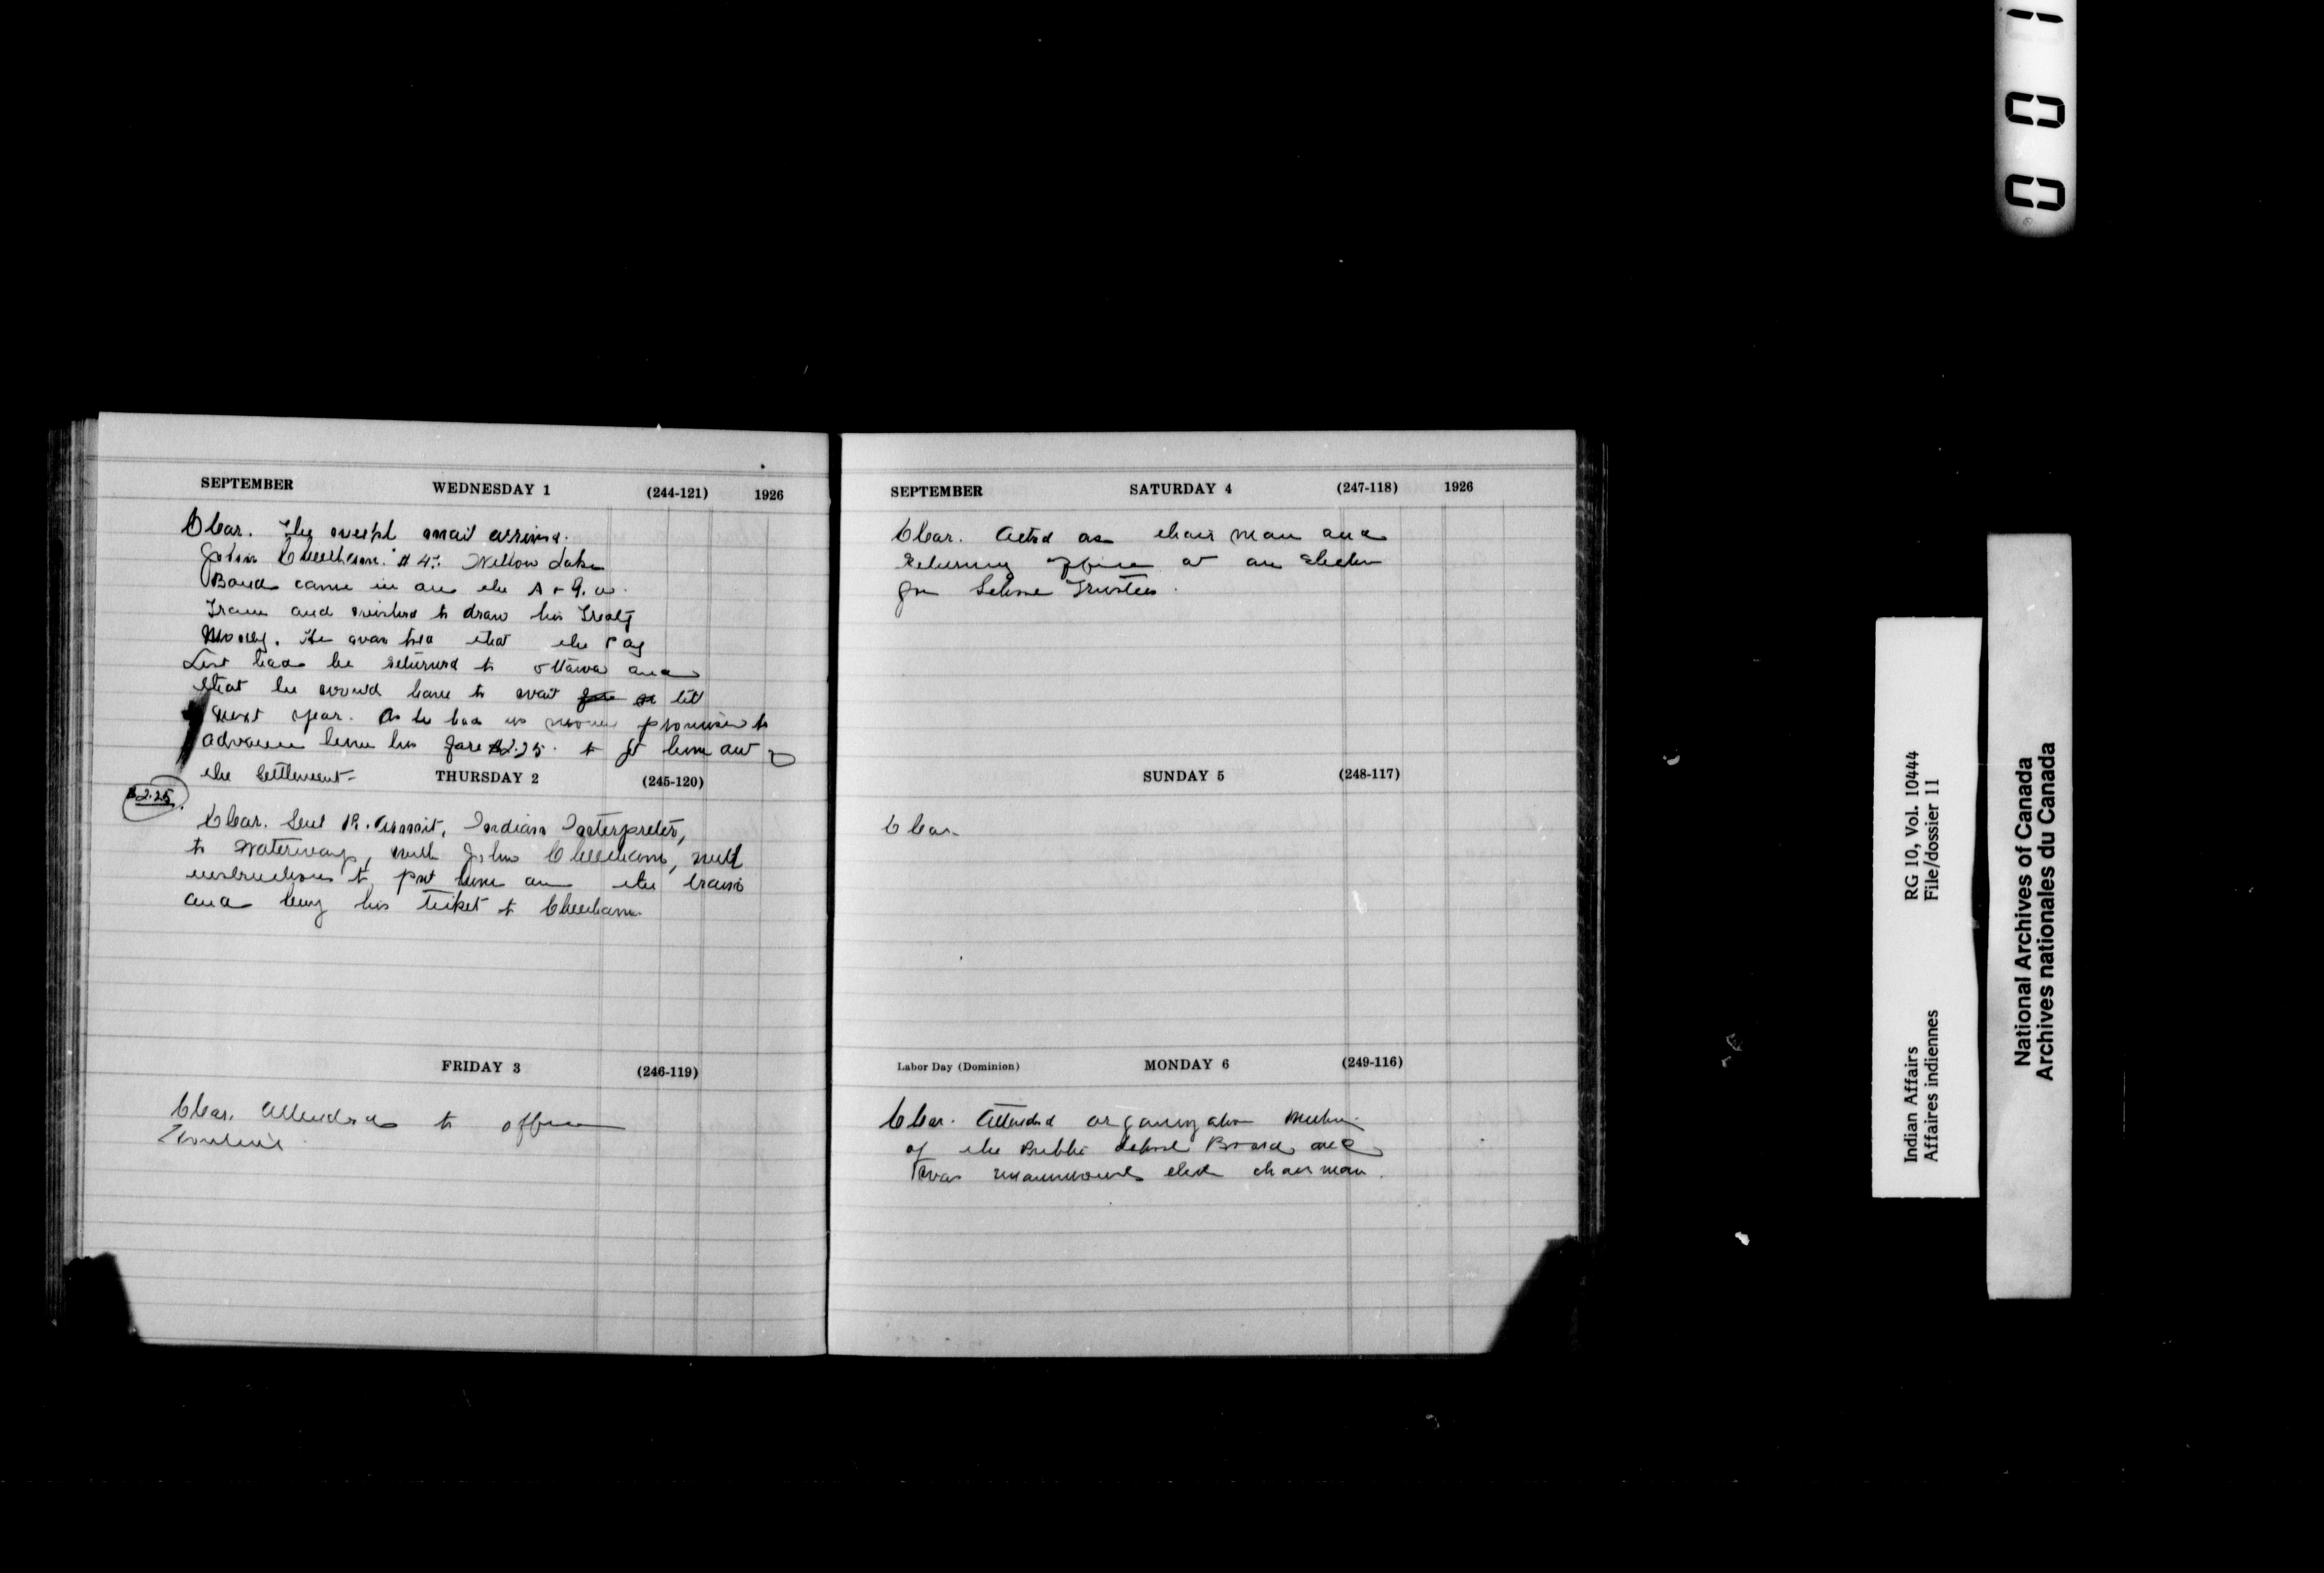 SEPTEMBER WEDNESDAY 1 (244-121) 1926
Clear. The weekly mail arrived.
John Cheecham # 4. Willow Lake
Band came in on the A & G. W.
Train and wished to draw his Treaty
Money. He was told that the Pay
List had be returned to Ottawa and
that he would have to wait till
next year. As he had no money promised to
advance him his fare $2.25. to get him out of
the Settlement-
$2.25
THURSDAY 2 (245-120)
Clear. Sent R. Indian Interpreter,
to Waterways, with John Cheecham, with
instructions to put him on the train
and buy his ticket to Cheecham.
FRIDAY 3 (246-119)
Clear. Attended to office
Routine.
SEPTEMBER SATURDAY 4 (247-118) 1926
Clear. Acted as chairman and
Returning officer at an Election
for School Trustees.
SUNDAY 5 (248-117)
Clear.
Labor Day (Dominion) MONDAY 6 (249-116)
Clear. Attended organization Meeting
of the Public School Board and
was unanimously elected chairman.
001
Indian Affairs RG 10, Vol. 10444
Affaires indiennes File/dossier 11
National Archives of Canada
Archives nationales du Canada